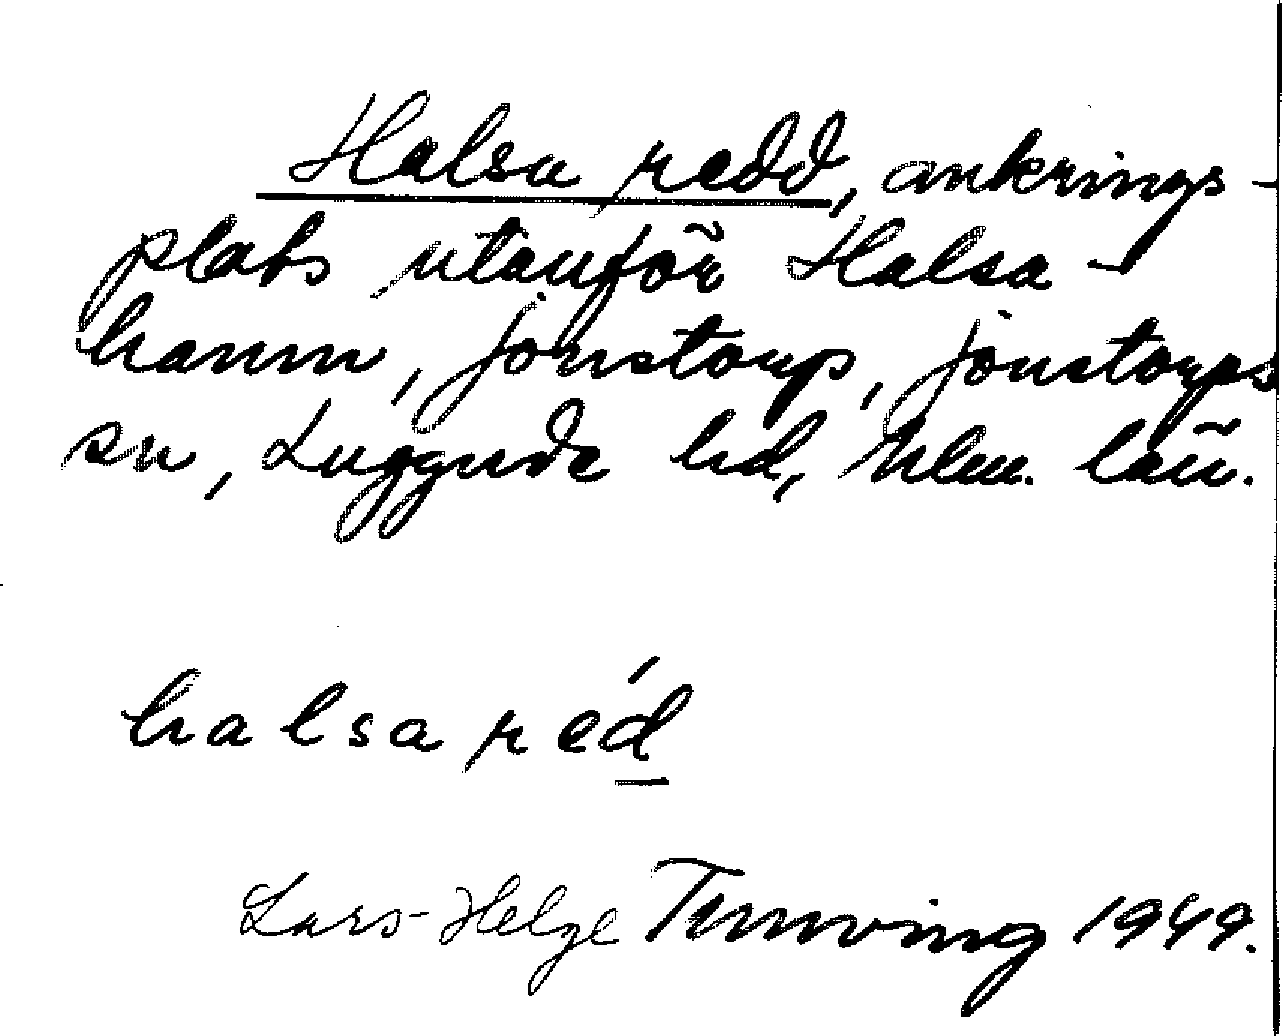 Halsa redd, ankrings-
plats utanför Halsa-
hamn, Jonstorp, Jonstorps
sn, Luggude hd, Mlm. län.
halsa réd
Lars-Helge Tunving 1949.